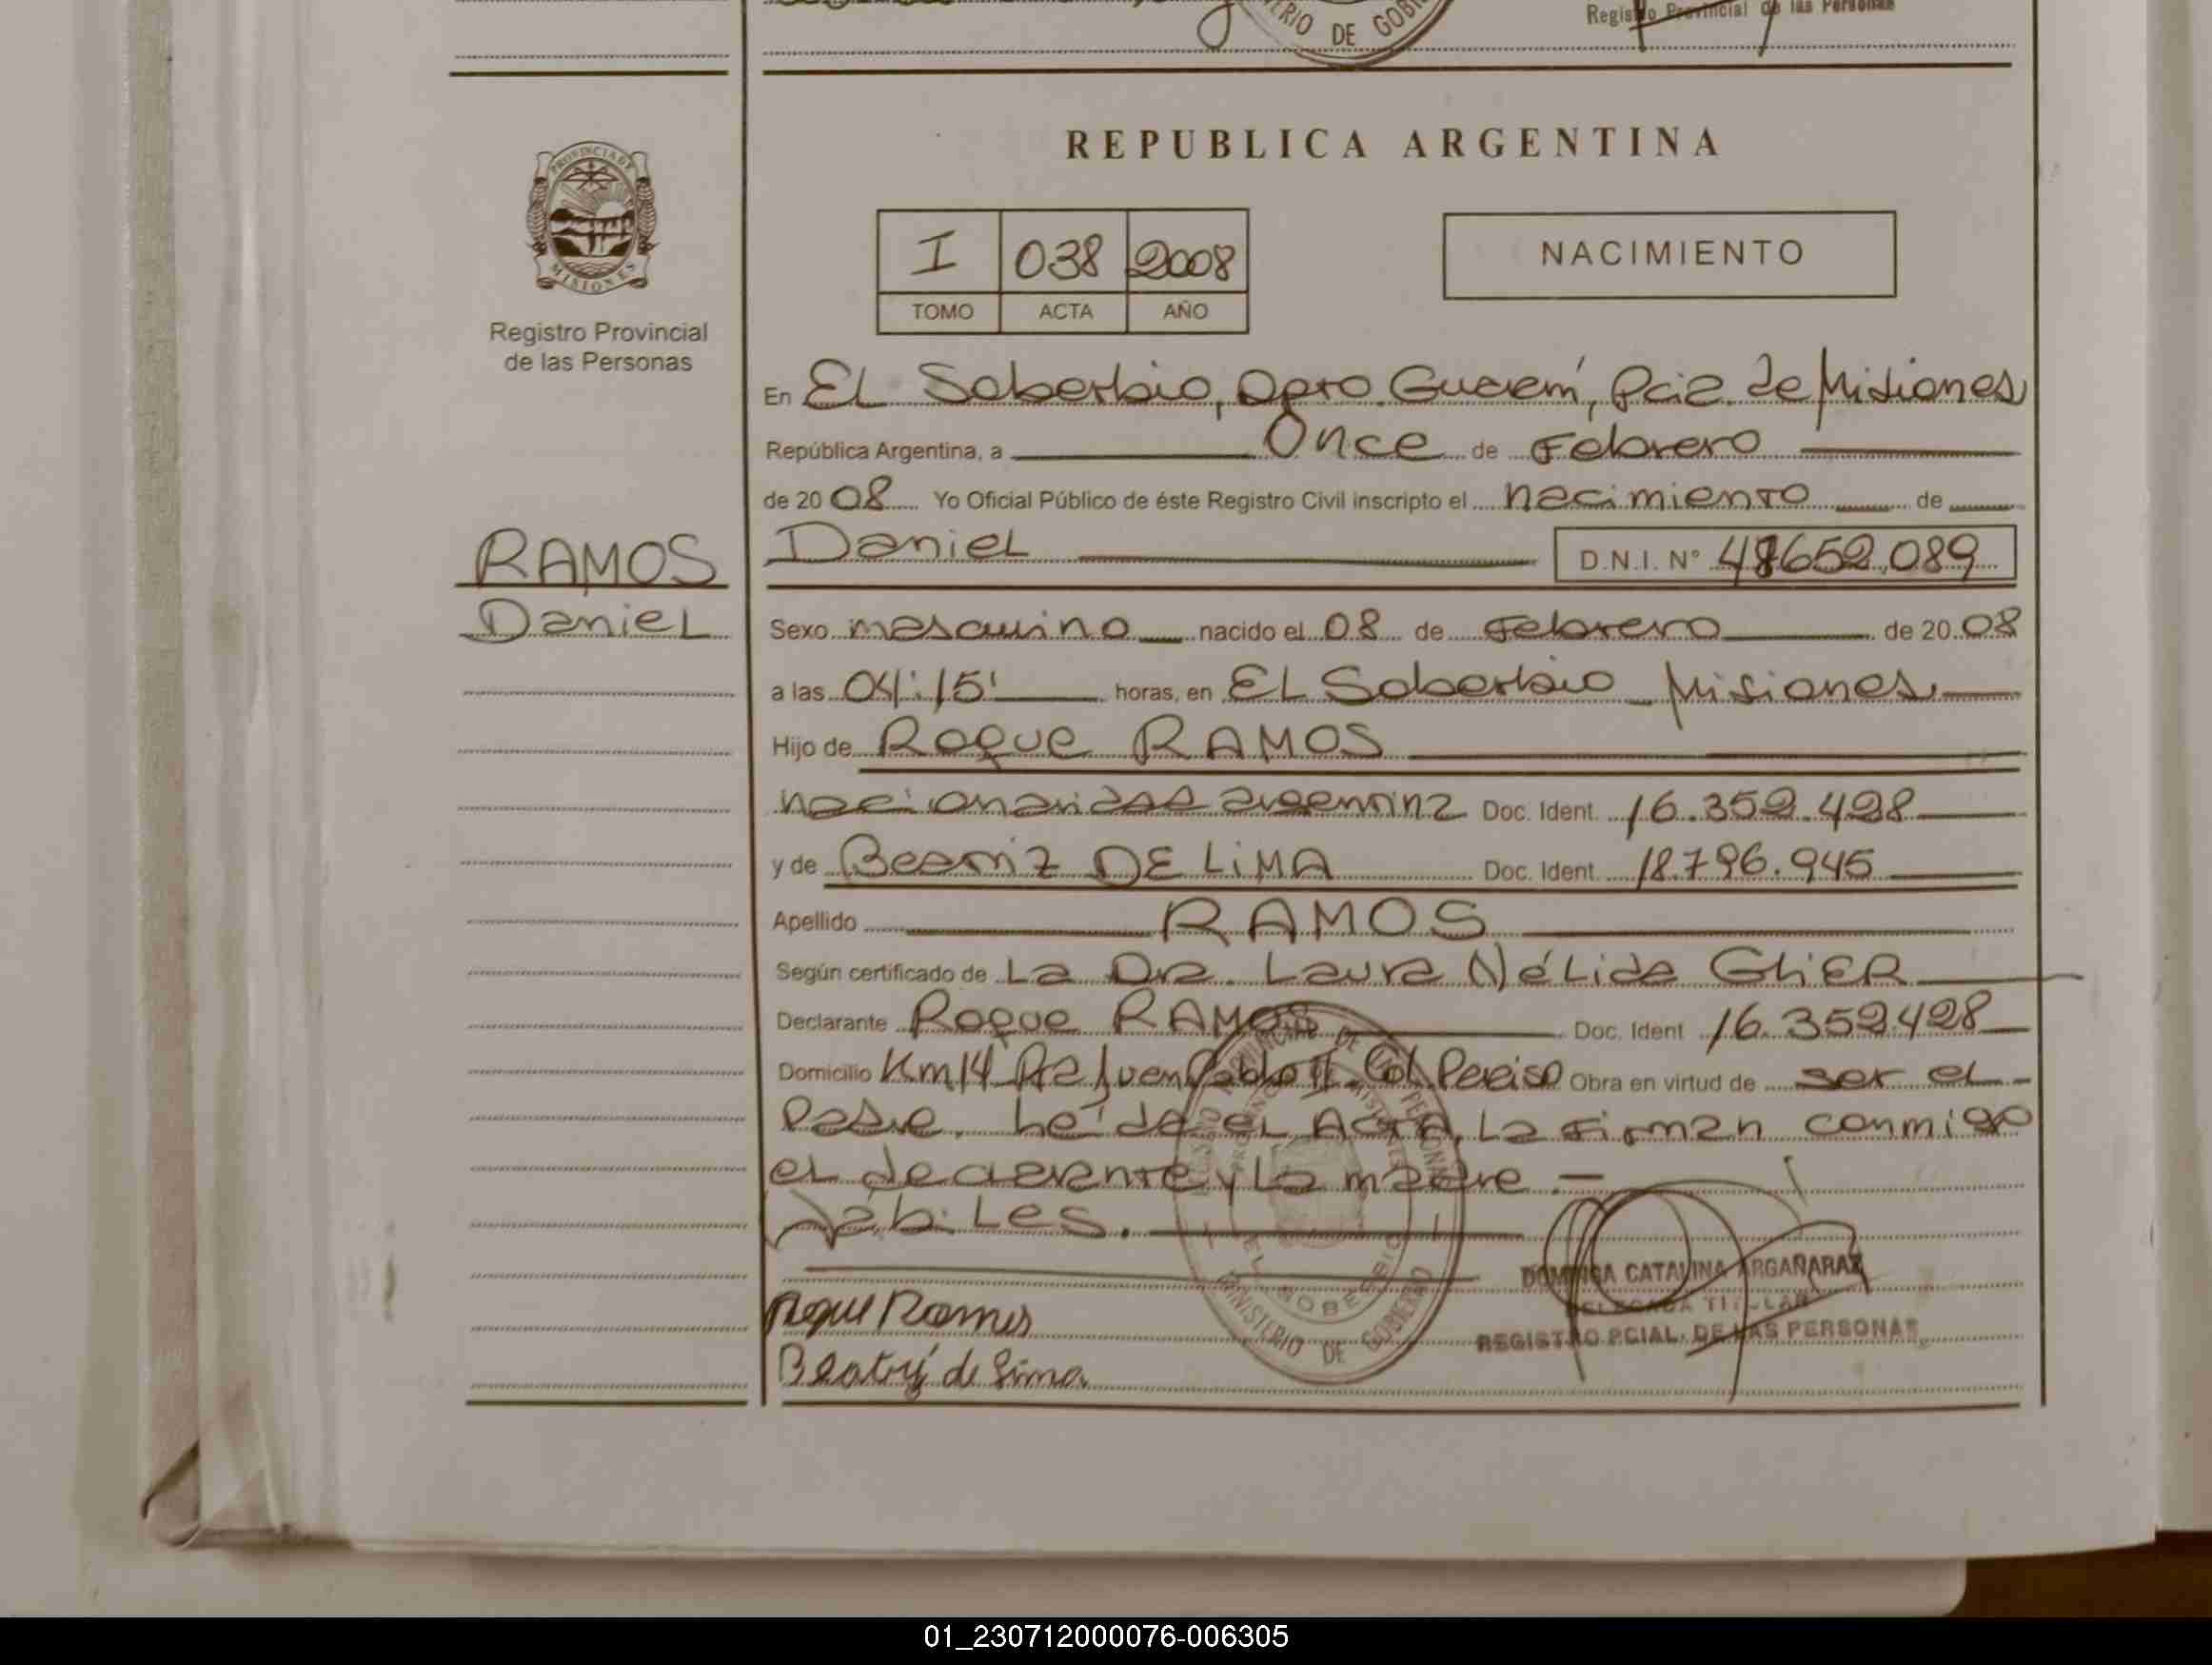 Registro Provincial de las Personas
ERIO DE GOBI
REPUBLICA ARGENTINA
PROVINCIA DE
MISIONES
Registro Provincial
de las Personas
I 038 2008
TOMO ACTA AÑO
NACIMIENTO
En EL Soberbio, Dpto. Guaraní, Pcia. de Misiones
República Argentina, a Once de Febrero
de 20 08 Yo Oficial Público de éste Registro Civil inscripto el nacimiento de
RAMOS
Daniel
Daniel D.N.I. N°
Sexo masculino nacido el 08 de Febrero de 20 08
a las 04:15' horas, en EL Soberbio Misiones
Hijo de Roque RAMOS
nacionalidad argentina Doc. Ident. 16.352.428
y de Beatriz DE LiMA Doc. Ident. 18.796.945
Apellido RAMOS
Según certificado de La Dra. Laura Nélida GLiER
Declarante Roque RAMOS Doc. Ident 16.352.428
Domicilio Km14 Pje Juan Pablo II. Col. Paraiso Obra en virtud de ser el
Padre. Leída el Acta, La firman conmigo
el declarante y La madre.-
EL SOBERBIO
MINISTERIO DE GOBIERNO
DOMINGA CATALINA ARGAÑARAZ
DELEGADA TITULAR
REGISTRO PCIAL. DE LAS PERSONAS
Roque Ramos
Beatriz de Lima
01_230712000076-006305